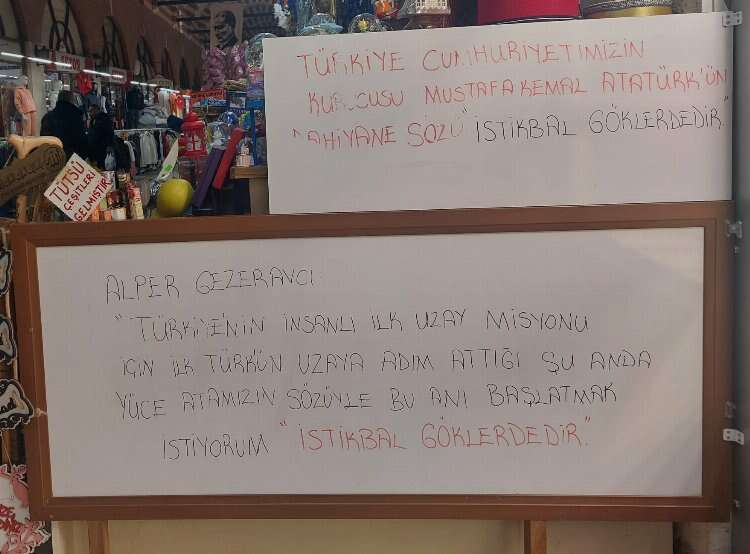 TÜRKİYE CUMHURİYETİMİZİN
KURUCUSU MUSTAFA KEMAL ATATÜRK'ÜN
DAHİYANE SÖZÜ "İSTİKBAL GÖKLERDEDİR"
TÜTSÜ
ÇEŞİTLERİ
GELMİŞTİR
ALPER GEZERAVCI:
"TÜRKİYE'NİN İNSANLI İLK UZAY MİSYONU
İÇİN İLK TÜRK'ÜN UZAYA ADIM ATTIĞI ŞU ANDA
YÜCE ATAMIZIN SÖZÜYLE BU ANI BAŞLATMAK
İSTİYORUM "İSTİKBAL GÖKLERDEDİR."